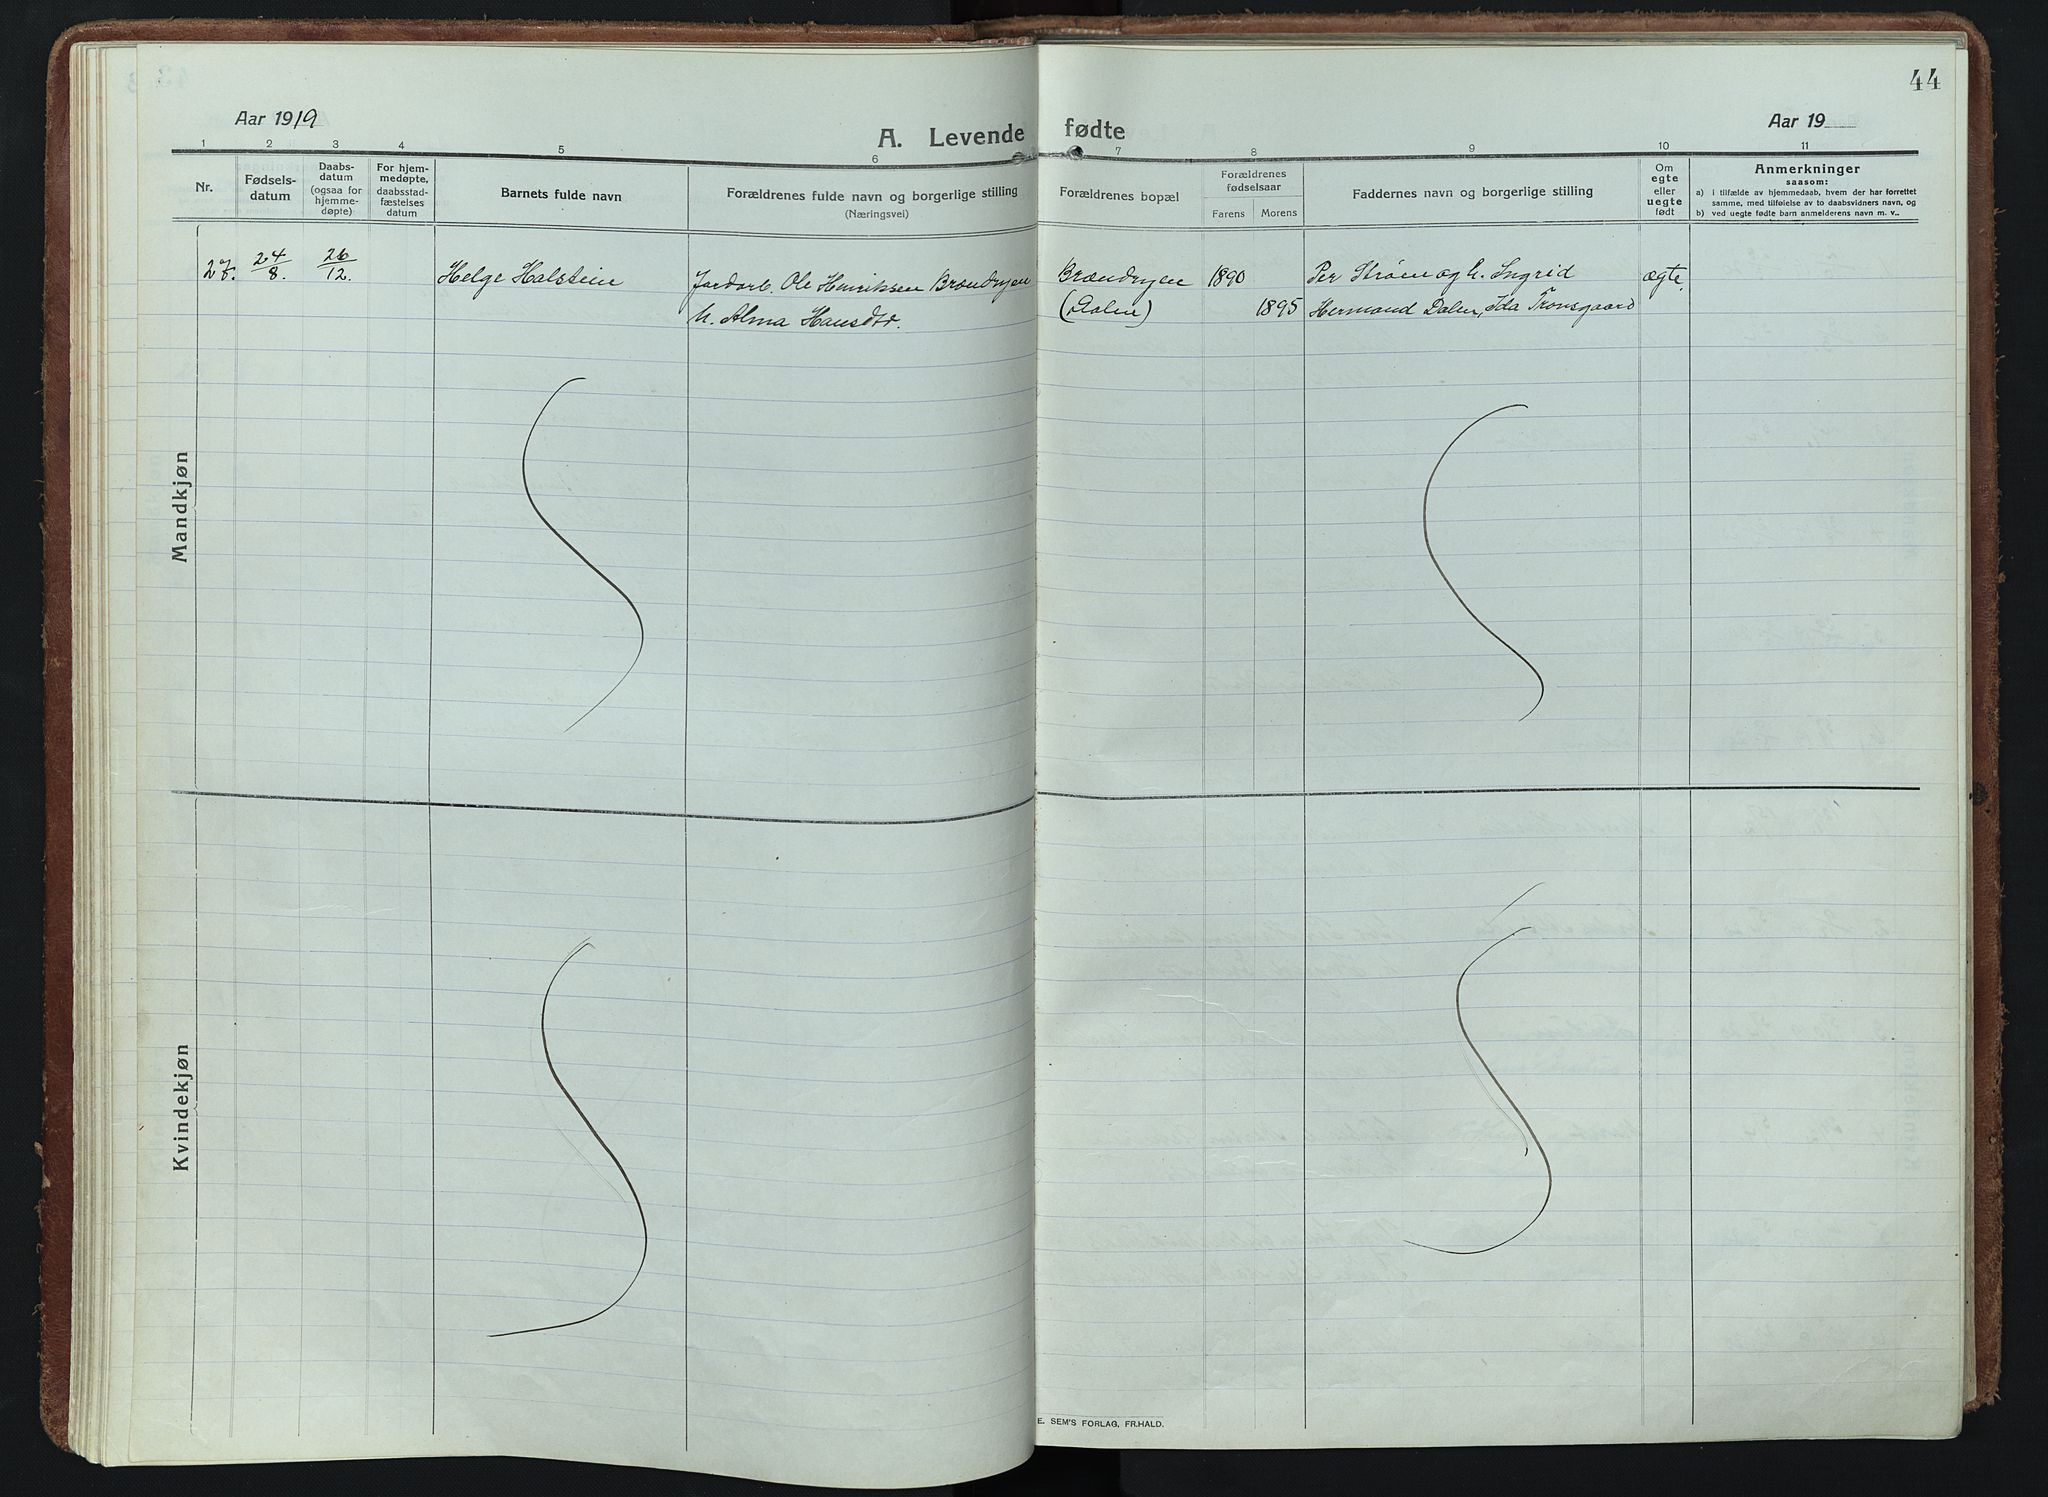 44
Aar 1919
A. Levende fødte
Aar 19
1 2 3 4 5 6 7 8 9 10 11
Nr.
Fødselsdatum
Daabsdatum (ogsaa for hjemmedøpte)
For hjemmedøpte, daabsstadfæstelses datum
Barnets fulde navn
Forældrenes fulde navn og borgerlige stilling
(Næringsvei)
Forældrenes bopæl
Forældrenes fødselsaar
Farens Morens
Faddernes navn og borgerlige stilling
Om egte eller uegte født
Anmerkninger
saasom:
a) i tilfælde av hjemmedaab, hvem der har forrettet
samme, med tilføielse av to daabsvidners navn, og
b) ved uegte fødte barn anmelderens navn m. v..
Mandkjøn
27. 24/8. 26/12. Helge Halstein Jordarb. Ole Henriksen Brændryen Brændryen 1890 Per Strøm og h. Ingrid ægte.
h. Alma Hansdtr. (Aalen) 1895 Hermand Dalen, Ida Tronsgaard
Kvindekjøn
E. SEM'S FORLAG, FR.HALD.